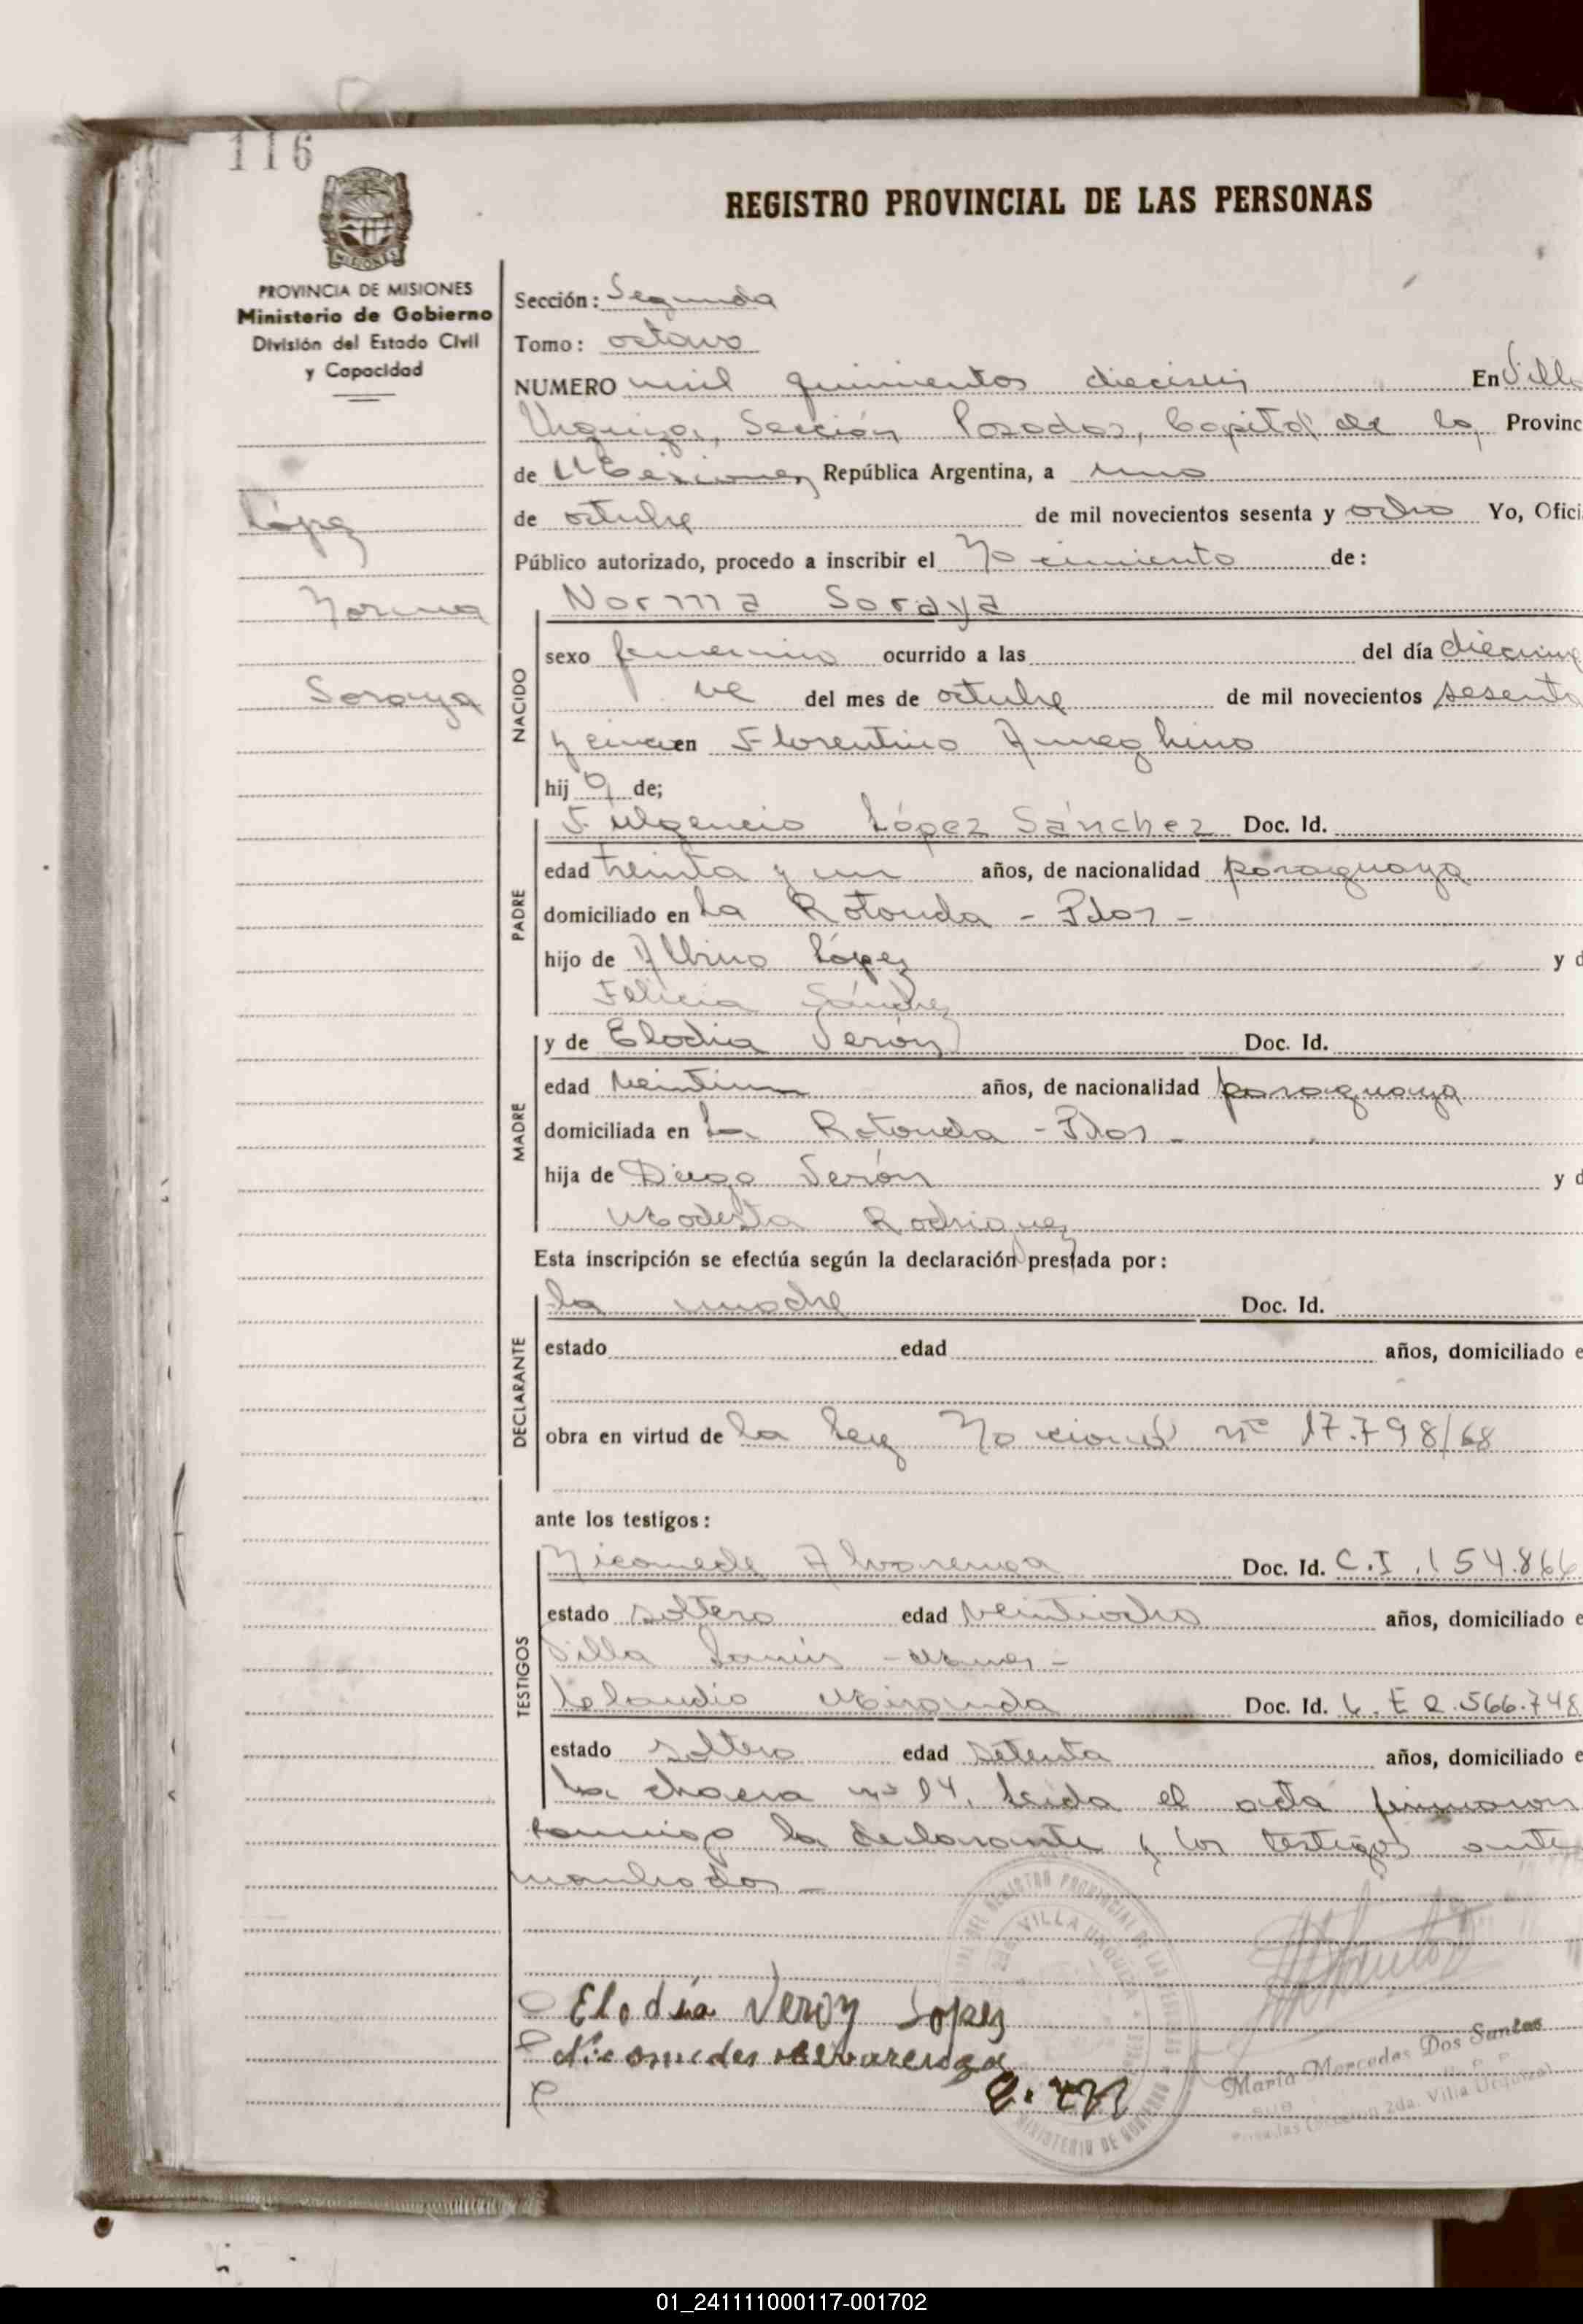 116
REGISTRO PROVINCIAL DE LAS PERSONAS
MISIONES
PROVINCIA DE MISIONES
Ministerio de Gobierno
División del Estado Civil
y Capacidad
López
Norma
Soraya
Sección: Segunda
Tomo: octavo
NUMERO mil quinientos dieciseis En Villa
Urquiza, Sección Posadas, Capital de la Provinc
de Misiones República Argentina, a uno
de octubre de mil novecientos sesenta y ocho Yo, Ofici
Público autorizado, procedo a inscribir el Nacimiento de:
NACIDO
Norma Soraya
sexo femenino ocurrido a las del día diecinue
ve del mes de octubre de mil novecientos sesenta
y cinco en Florentino Ameghino
hij a de;
PADRE
Fulgencio López Sánchez Doc. Id.
edad treinta y un años, de nacionalidad paraguaya
domiciliado en La Rotonda - Pdas -
hijo de Albino López y d
Felicia Sánchez
MADRE
y de Elodia Verón Doc. Id.
edad veintiun años, de nacionalidad paraguaya
domiciliada en La Rotonda - Pdas -
hija de Diego Verón y d
Modesta Rodriguez
Esta inscripción se efectúa según la declaración prestada por:
DECLARANTE
la madre Doc. Id.
estado edad años, domiciliado e
obra en virtud de la Ley Nacional nº 17.798/68
ante los testigos:
TESTIGOS
Nicomede Alvarenga Doc. Id. C.I. 154.866
estado soltero edad veintiocho años, domiciliado e
Villa Lanús
Claudio Miranda Doc. Id. L.E 2.566.748
estado soltero edad setenta años, domiciliado e
la chacra nº 14. Leida el acta firmaron
conmigo la declarante y los testigos ante
nombrados -
Elodia Veron Lopez
Nicomedes Alvarenga
Maria Mercedes Dos Santos
2da. Villa Urquiza
REGISTRO PROVINCIAL DE LAS PERSONAS
VILLA URQUIZA
MINISTERIO DE GOBIERNO
01_241111000117-001702